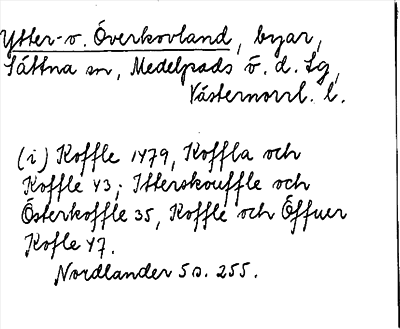 Ytter- o. Överkovland, byar,
Sättna sn, Medelpads v. d. Lg,
Västernorrl. l.
(i) Koffle 1479, Koffla och
Koffle 43; Itterskouffle och
Österkoffle 35, Koffle och Öffuer
Kofle 47.
Nordlander 5 s. 255.